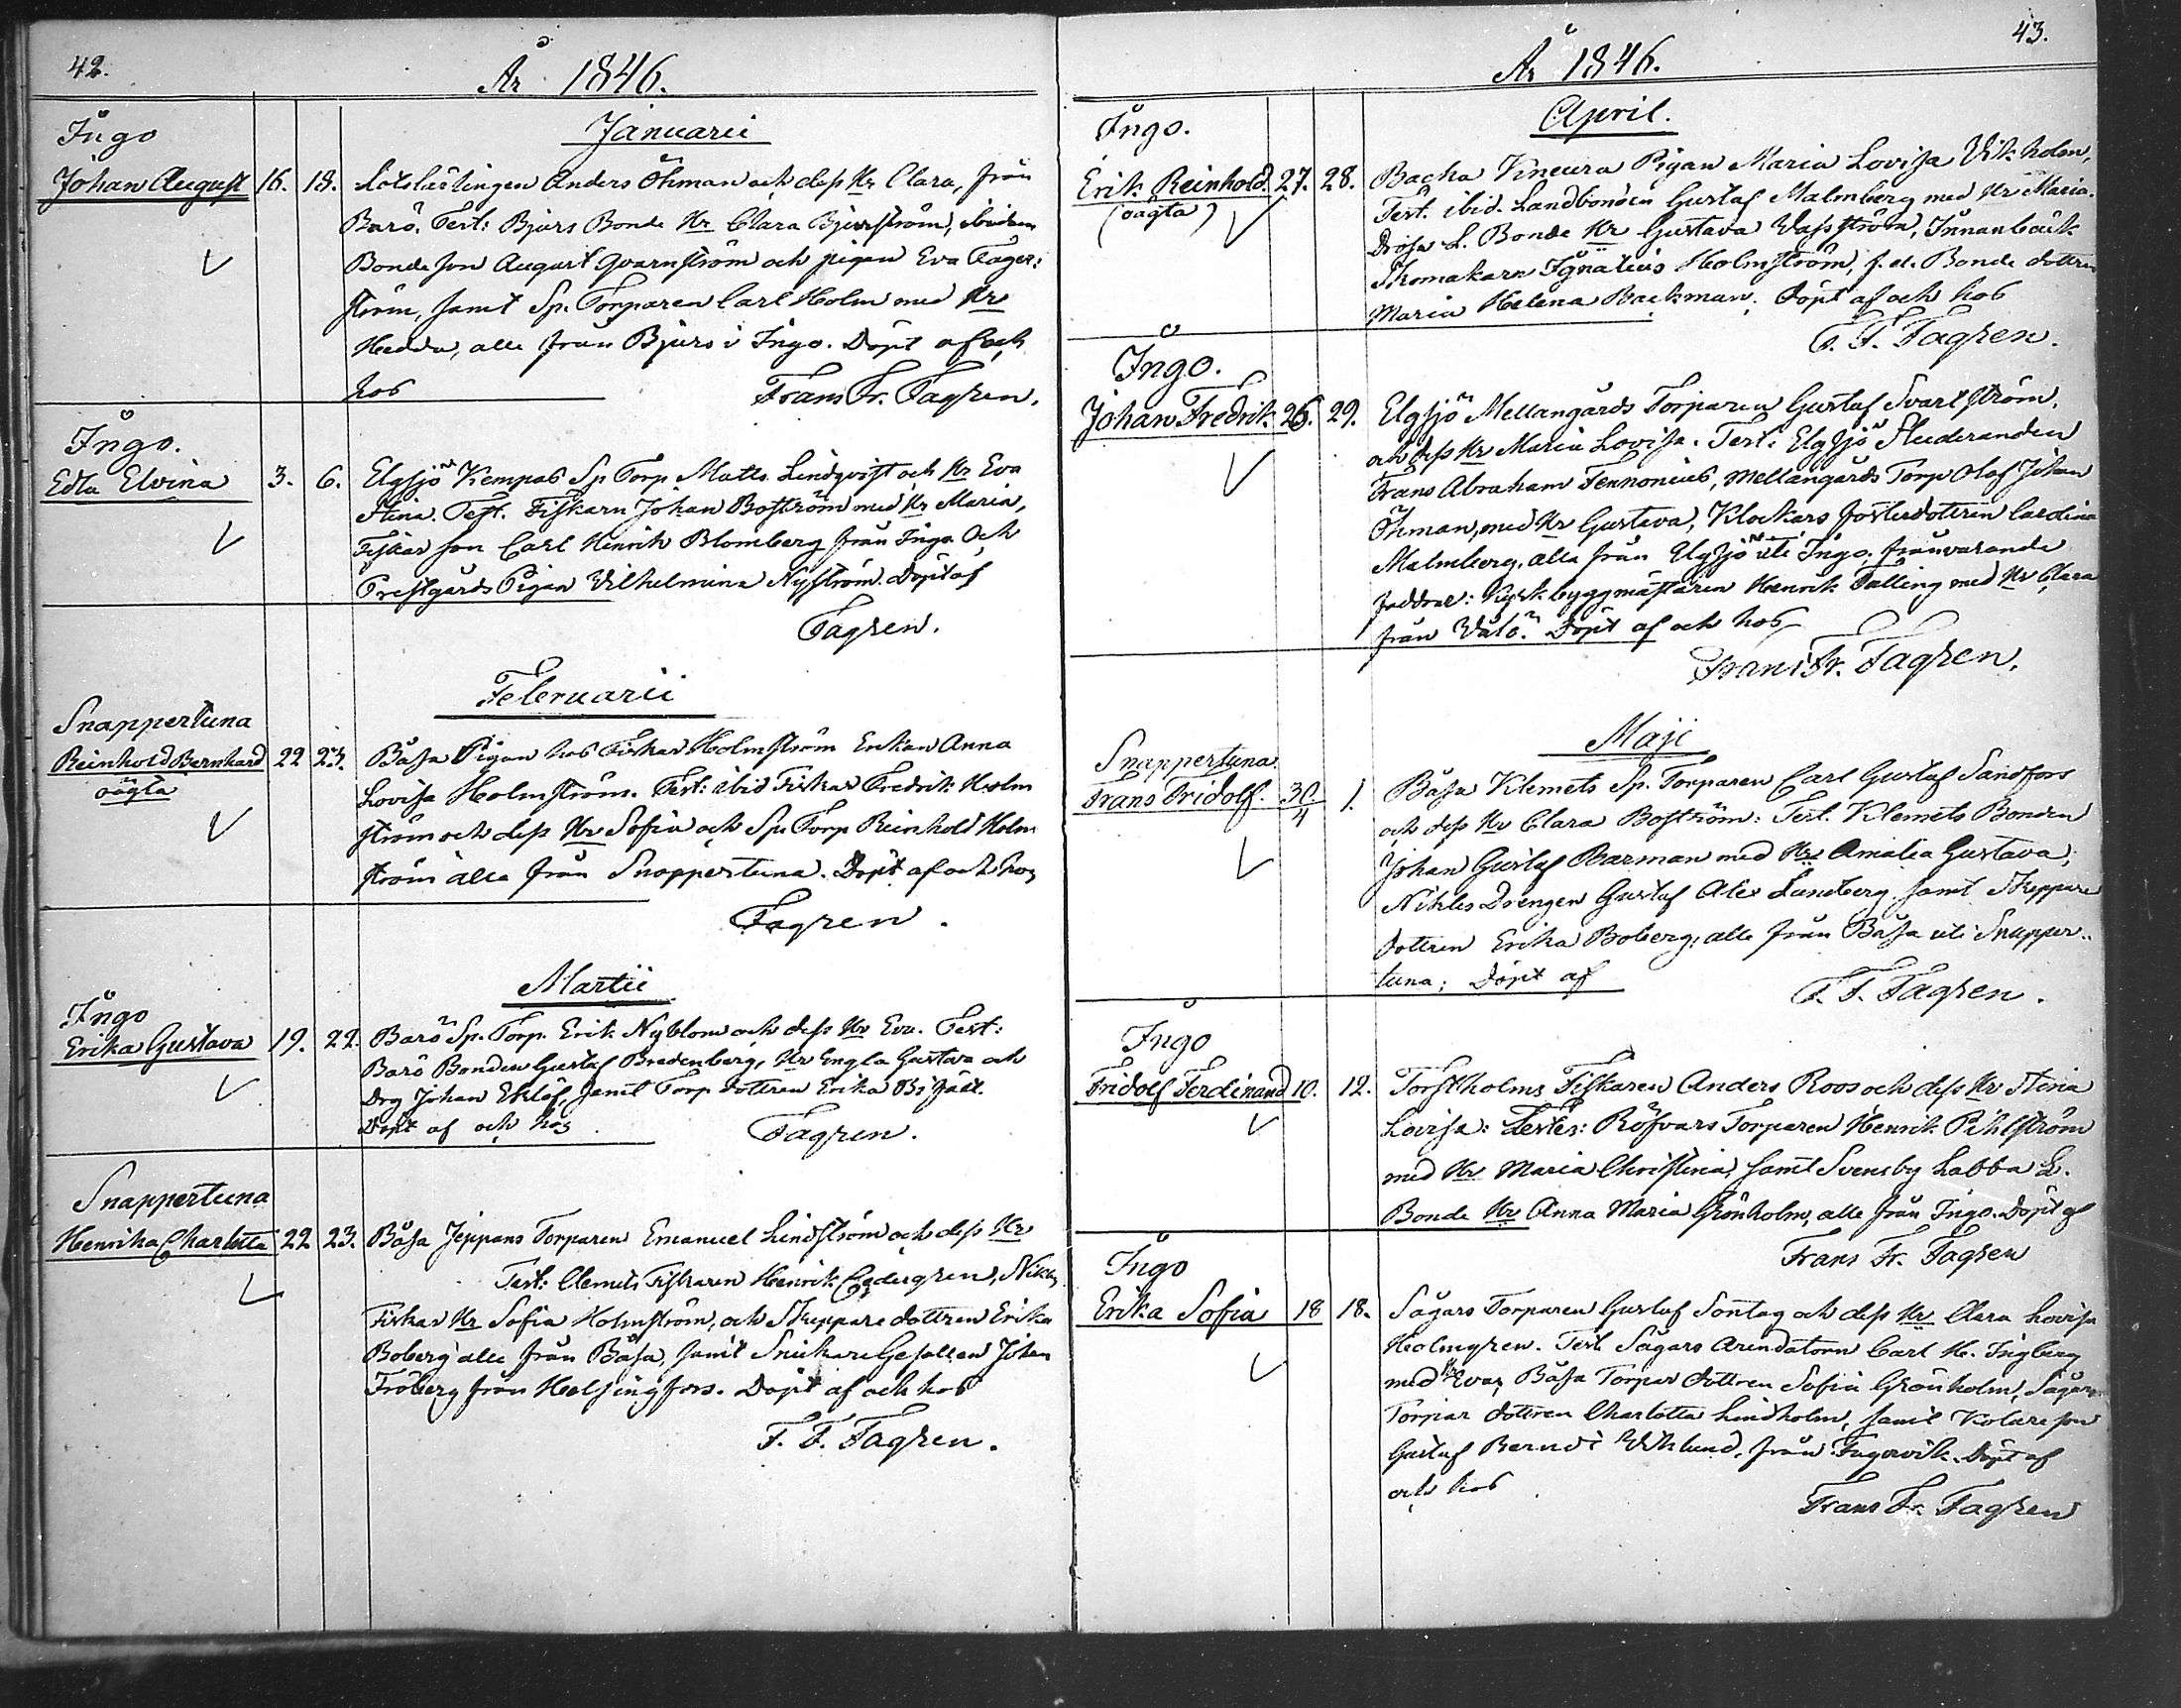 42.
År 1846.
Ingo
Januarii
Johan August 16. 18. Lotslärlingen Anders Öhman och dess Hr Clara, från
Barö. Test: Bjurs Bonde Hr Clara Bjurström, ibidem
Bonde son August Qvarnström och pigan Eva Fager:
ström, samt Sp. Torparen Carl Holm med Hr
Hedda, alle från Bjurs i Ingo. Döpt af och
hos Frans Fr. Fagren.
Ingo.
Edla Elvina 3. 6. Elgsjö Kempas Sp Torp Matts Lindqvist och Hr Eva
Stina. Test. Fiskarn Johan Boström med Hr Maria,
Fiskar son Carl Henrik Blomberg från Ingo Och
Prestgårds Pigan Vilhelmina Nyström. Döpt af
Fagren.
Februarii
Snappertuna
Reinhold Bernhard 22 23. Båsa Pigan hos Fiskar Holmström Enkan Anna
oägta
Lovisa Holmström. Test: ibid Fiskar Fredrik Holm
ström och dess Hr Sofia och Sp. Torp Reinhold Holm
ström alla från Snappertuna. Döpt af och hos
Fagren.
Martii
Ingo
Erika Gustava 19. 22. Barö Sp. Torp. Erik Nyblom och dess Hr Eva. Test:
Barö Bonden Gustaf Bredenberg, Hr Engla Gustava och
Drg Johan Eklöf, samt Torp dottren Erika
Döpt af och hos Fagren.
Snappertuna
Henrika Charlotta 22 23. Båsa Jeppans Torparen Emanuel Lindström och dess Hr
Test: Clemets Fiskaren Henrik Cedergren, Nikls
Fiskar Hr Sofia Holmström, och Skeppare dottren Erika
Boberg alle från Båsa, samt Snickare Gesällen Johan
Fröberg från Helsingfors. Döpt af och hos
F. F. Fagren.
43.
År 1846.
Ingo.
April.
Erik Reinhold. 27. 28. Backa Pigan Maria Lovisa Vikholm,
(oägta)
Test. ibid. Landbonden Gustaf Malmberg med Hr Maria.
L. Bonde Hr Gustava Wasström, Innanbäck
Ignatius Holmström, f. d. Bonde dottren
Maria Helena Backman. Döpt af och hos
F. F. Fagren.
Ingo.
Johan Fredrik. 26. 29. Elgsjö Mellangårds Torparen Gustaf Svartström,
och dess Hr Maria Lovisa. Test: Elgsjö Studeranden
Frans Abraham Fennonius, Mellangårds Torp Olof Johan
Öhman, med Hr Gustava, Klockars fosterdottren Carolina
Malmberg, alla från Elgsjö uti Ingo. frånvarande
faddrar: Kyrkbyggmästaren Henrik Fälling med Hr Clara
från Döpt af och hos
Frans Fr. Fagren.
Maji
Snappertuna.
Frans Fridolf. 30/4 1. Båsa Klemets Sp. Torparen Carl Gustaf Sandfors
och dess Hr Clara Boström: Test. Klemets Bonden
Johan Gustaf Barman med Hr Amalia Gustava,
Nikles Drengen Gustaf Alex Lundberg, samt Skeppare
dottren Erika Boberg; alle från Båsa uti Snapper-
tuna; Döpt af F. F. Fagren.
Ingo
Fridolf Ferdinand 10. 12. Torstholms Fiskaren Anders Roos och dess Hr Stina
Lovisa: Testes: Röfvars Torparen Henrik Pihlström
med Hr Maria Christina, samt Svensby Labba L.
Bonde Hr Anna Maria Grönholm, alle från Ingo. Döpt af
Frans Fr. Fagren
Ingo
Erika Sofia 18 18. Sågars Torparen Gustaf Sontag och dess Hr Clara Lovisa
Holmgren. Test Sågars Arendatorn Carl H. Ingberg
med Hr Eva, Båsa Torpar dottren Sofia Grönholm, Sågars
Torpar dottren Charlotta Lindholm, samt Kolare son
Gustaf Berndt Viklund, från Fagervik. Döpt af
och hos
Frans Fr. Fagren